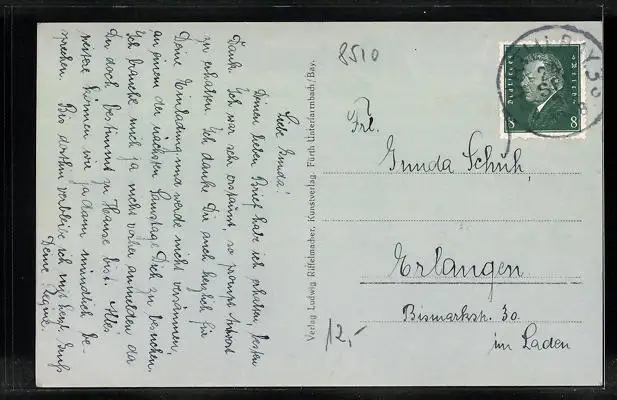 Liebe Gunda!
Deinen lieben Brief habe ich erhalten, besten
Dank. Ich war sehr erstaunt, so prompt Antwort
zu erhalten. Ich danke Dir auch herzlich für
Deine Einladung und werde nicht versäumen,
an einem der nächsten Samstage Dich zu besuchen.
Ich brauche mich ja nicht vorher anmelden da
Du doch bestimmt zu Hause bist. Alles
weitere können wir ja dann mündlich be-
sprechen. Bis dorthin verbleibe ich mit herzl. Gruß
Deine
Verlag Ludwig Riffelmacher, Kunstverlag Fürth Unterfarrnbach/Bay.
8510
12,-
Deutsches Reich
8 8
Frl.
Gunda Schuh,
Erlangen
Bismarkstr. 30.
im Laden